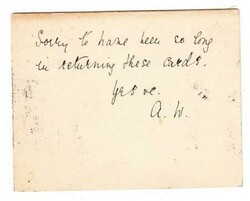 Sorry to have been so long
in returning these cards.
Yrs
A. W.